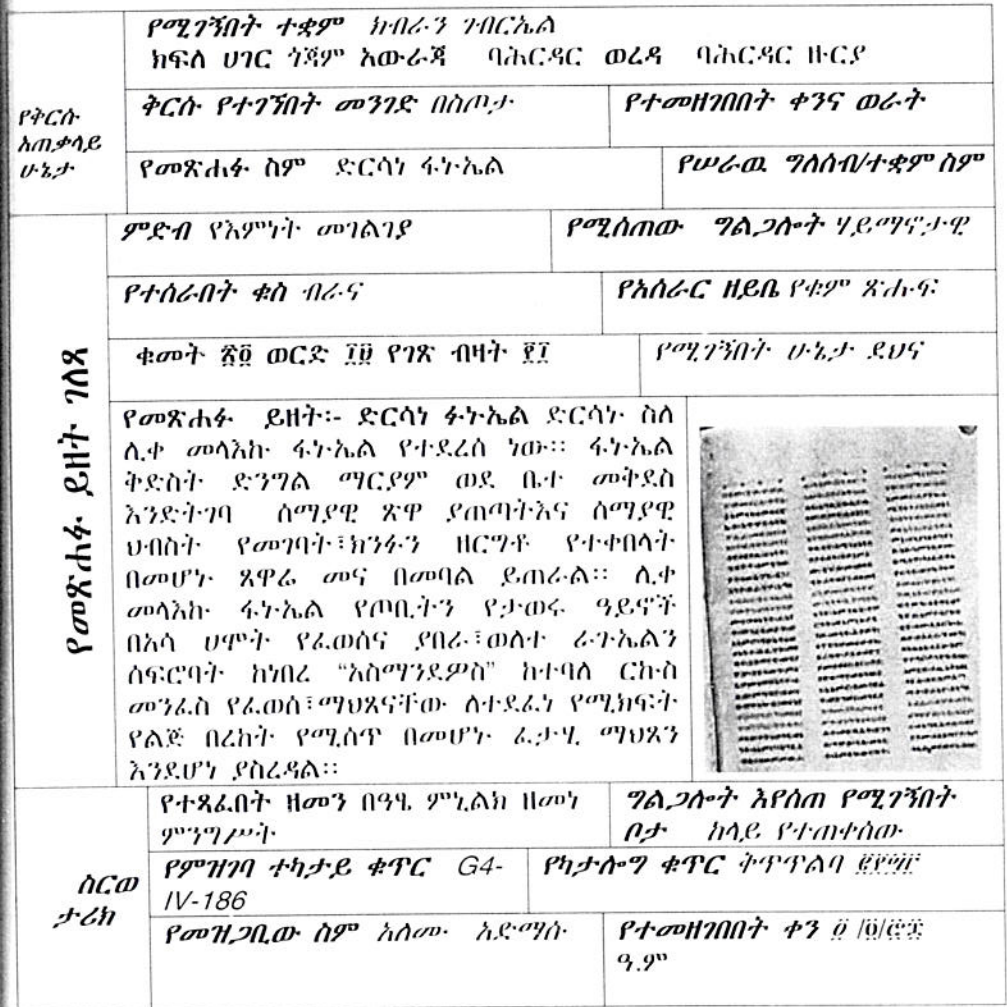 የሚገኝበት ተቋም ክብራን ገብርኤል
ክፍለ ሀገር ጎጃም አውራጃ ባሕርዳር ወረዳ ባሕርዳር ዙርያ
የቅርሱ
አጠቃላይ
ሁኔታ
ቅርሱ የተገኘበት መንገድ በስጦታ
የተመዘገበበት ቀንና ወራት
የመጽሐፉ ስም ድርሳነ ፋኑኤል
የሠራዉ ግለሰብ/ተቋም ስም
የመጽሐፉ ይዘት ገለጻ
ምድብ የእምነት መገልገያ
የሚሰጠው ግልጋሎት ሃይማኖታዊ
የተሰራበት ቁስ ብራና
የአሰራር ዘይቤ የቁም ጽሑፍ
ቁመት ወርድ ፲፱ የገጽ ብዛት ፻፲
የሚገኝበት ሁኔታ ደህና
የመጽሐፉ ይዘት፡- ድርሳነ ፉኑኤል ድርሳኑ ስለ
ሊቀ መላእኩ ፋኑኤል የተደረሰ ነው፡፡ ፋኑኤል
ቅድስት ድንግል ማርያም ወደ ቤተ መቅደስ
እንድትገባ ሰማያዊ ጽዋ ያጠጣትእና ሰማያዊ
ህብስት የመገባት፣ክንፉን ዘርግቶ የተቀበላት
በመሆኑ ጸዋሬ መና በመባል ይጠራል፡፡ ሊቀ
መላእኩ ፋኑኤል የጦቢትን የታወሩ ዓይኖች
በአሳ ሀሞት የፈወሰና ያበራ፣ወለተ ራጉኤልን
ሰፍሮባት ከነበረ “አስማንደዎስ” ከተባለ ርኩስ
መንፈስ የፈወሰ፣ማህጸናቸው ለተደፈነ የሚከፍት
የልጅ በረከት የሚሰጥ በመሆኑ ፈታሂ ማህጸን
እንደሆነ ያስረዳል፡፡
ስርወ
ታሪክ
የተጻፈበት ዘመን በዓፄ ምኒልክ ዘመነ
ምንግሥት
ግልጋሎት እየሰጠ የሚገኝበት
ቦታ ከላይ የተጠቀሰው
የምዝገባ ተካታይ ቁጥር G4-
IV-186
የካታሎግ ቁጥር ቅጥጥልባ
የመዝጋቢው ስም አለሙ አድማሱ
የተመዘገበበት ቀን
ዓ.ም